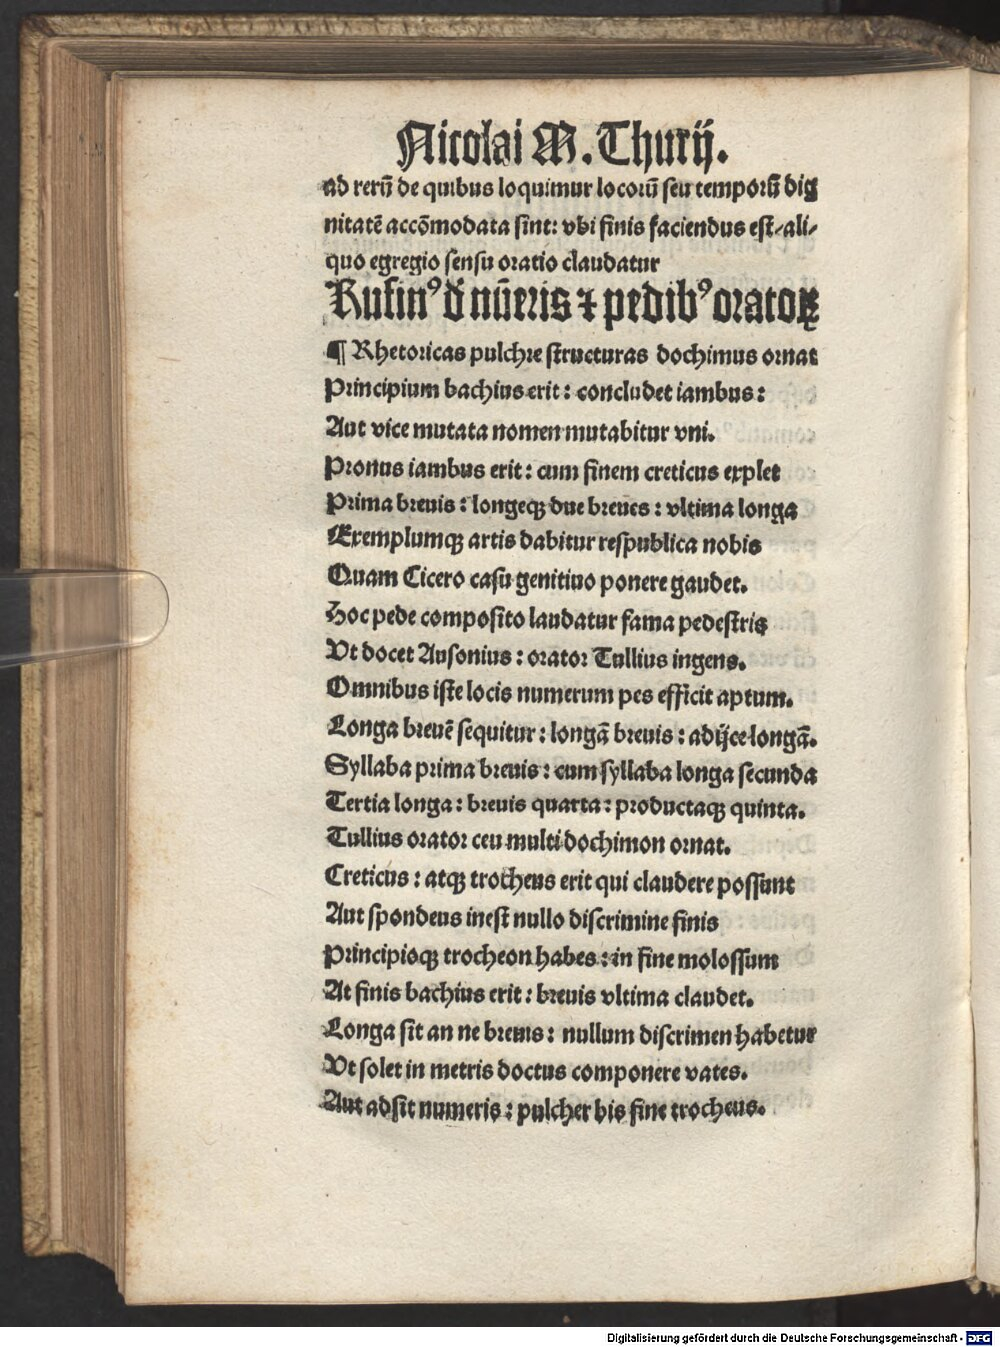 Nicolai M. Thurij.
ad rerū de quibus loquimur locorū seu temporū dig
nitatē accōmodata sint: vbi finis faciendus est/ali/
quo egregio sensu oratio claudatur
Rufinꝰ d̄ nūeris ⁊ pedibꝰ oratoꝝ
¶ Rhetoricas pulchre structuras dochimus ornat
Principium bachius erit: concludet iambus:
Aut vice mutata nomen mutabitur vni.
Pronus iambus erit: cum finem creticus explet
Prima breuis: longeqꝫ due breues: vltima longa
Exemplumqꝫ artis dabitur respublica nobis
Quam Cicero casu genitiuo ponere gaudet.
Hoc pede composito laudatur fama pedestris
Vt docet Ausonius: orator Tullius ingens.
Omnibus iste locis numerum pes efficit aptum.
Longa breuē sequitur: longā breuis: adijce longā.
Syllaba prima breuis: cum syllaba longa secunda
Tertia longa: breuis quarta: productaqꝫ quinta.
Tullius orator ceu multi dochimon ornat.
Creticus: atqꝫ trocheus erit qui claudere possunt
Aut spondeus inest nullo discrimine finis
Principioqꝫ trocheon habes: in fine molossum
At finis bachius erit: breuis vltima claudet.
Longa sit an ne breuis: nullum discrimen habetur
Vt solet in metris doctus componere vates.
Aut adsit numeris: pulcher bis fine trocheus.
Digitalisierung gefördert durch die Deutsche Forschungsgemeinschaft - DFG